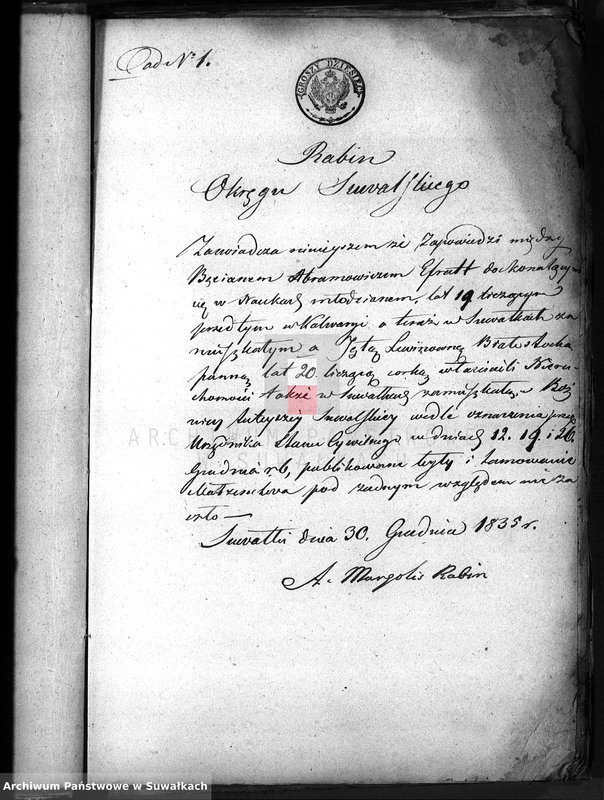 ad N<sup>o</sup> 1.
GROSZY DZIESIĘĆ
Rabin
Okręgu Suwalskiego
Zaświadcza niniejszem że Zapowiedzi między
Abramowiczem Efratt doskonalącym
się w Naukach młodzianem, lat 19 liczącym
przedtym w Kalwaryi a teraz w Suwałkach za
mieszkałym a Lewinowną Białostocka
panną lat 20 liczącą córką właścicieli Nieru-
chomości także w Suwałkach zamieszkałą, w Boż
nicy tuteyszéj Suwalskiéy wedle wezwania przez
Urzędnika Stanu Cywilnego w dniach 12. 19. i 26.
Grudnia r b, publikowane były i tamowanie
Małżeństwa pod żadnym względem nie za
szło —
Suwałki dnia 30. Grudnia 1835 r.
A. Margolis Rabin
ARCHIWUM PAŃSTWOWE
W SUWAŁKACH
Archiwum Państwowe w Suwałkach